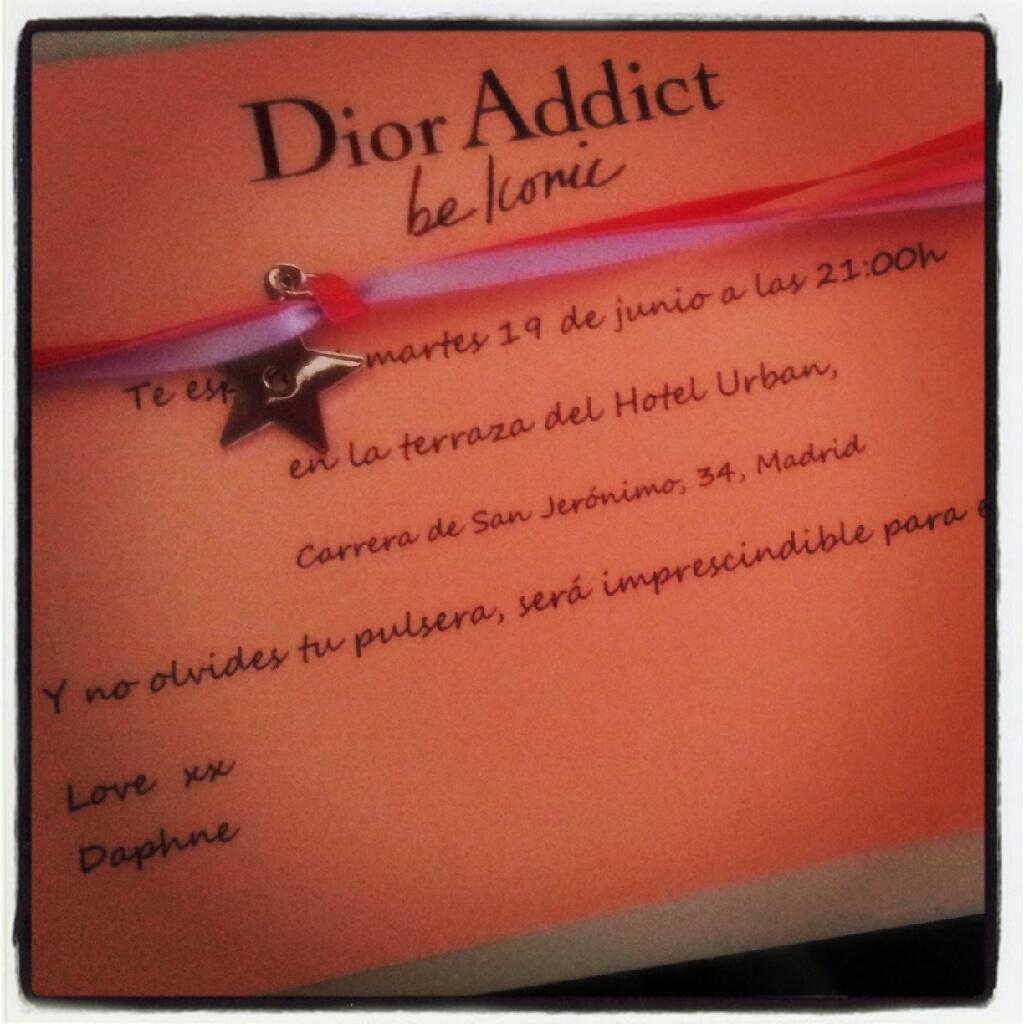 Dior Addict
be Iconic
Te martes 19 de junio a las 21:00h
en la terraza del Hotel Urban,
Carrera de San Jerónimo, 34, Madrid
Y no olvides tu pulsera, será imprescindible para
Love xx
Daphne